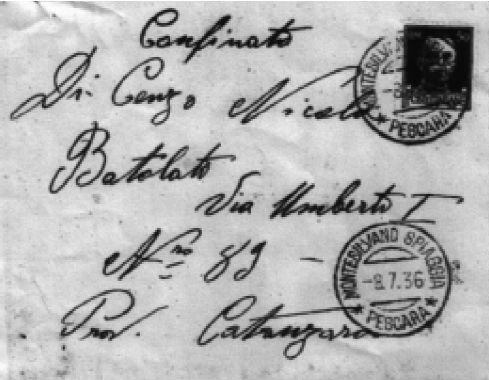 Confinato
Di Cenzo Nicola
Batolato
Via Umberto I
Nro 89 -
Prov. Catanzaro
MONTESILVANO
* PESCARA
MONTESILVANO SPIAGGIA
-8.7.36
* PESCARA *